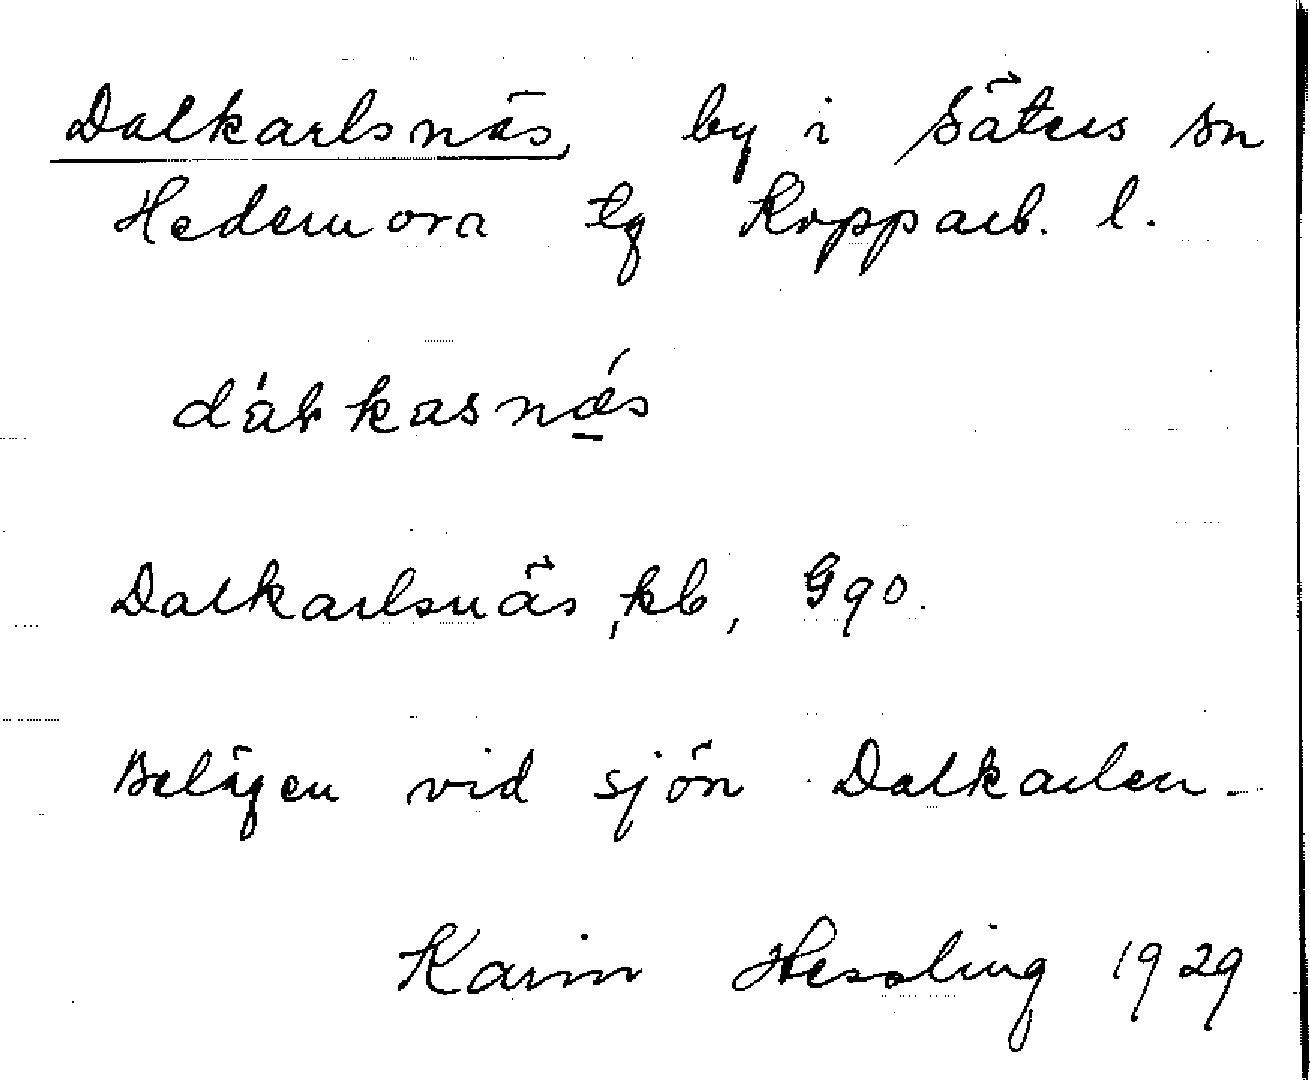 Dalkarlsnäs, by i Säters sn
Hedemora tg Kopparb. l.
Dalkarlsnäs, kb, G90.
Belägen vid sjön Dalkarlen.
Karin Hessling 1929